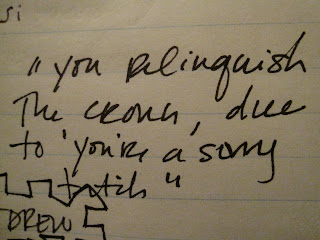 si
"you relinquish
The crown, due
to 'you're a sorry
"
DREW